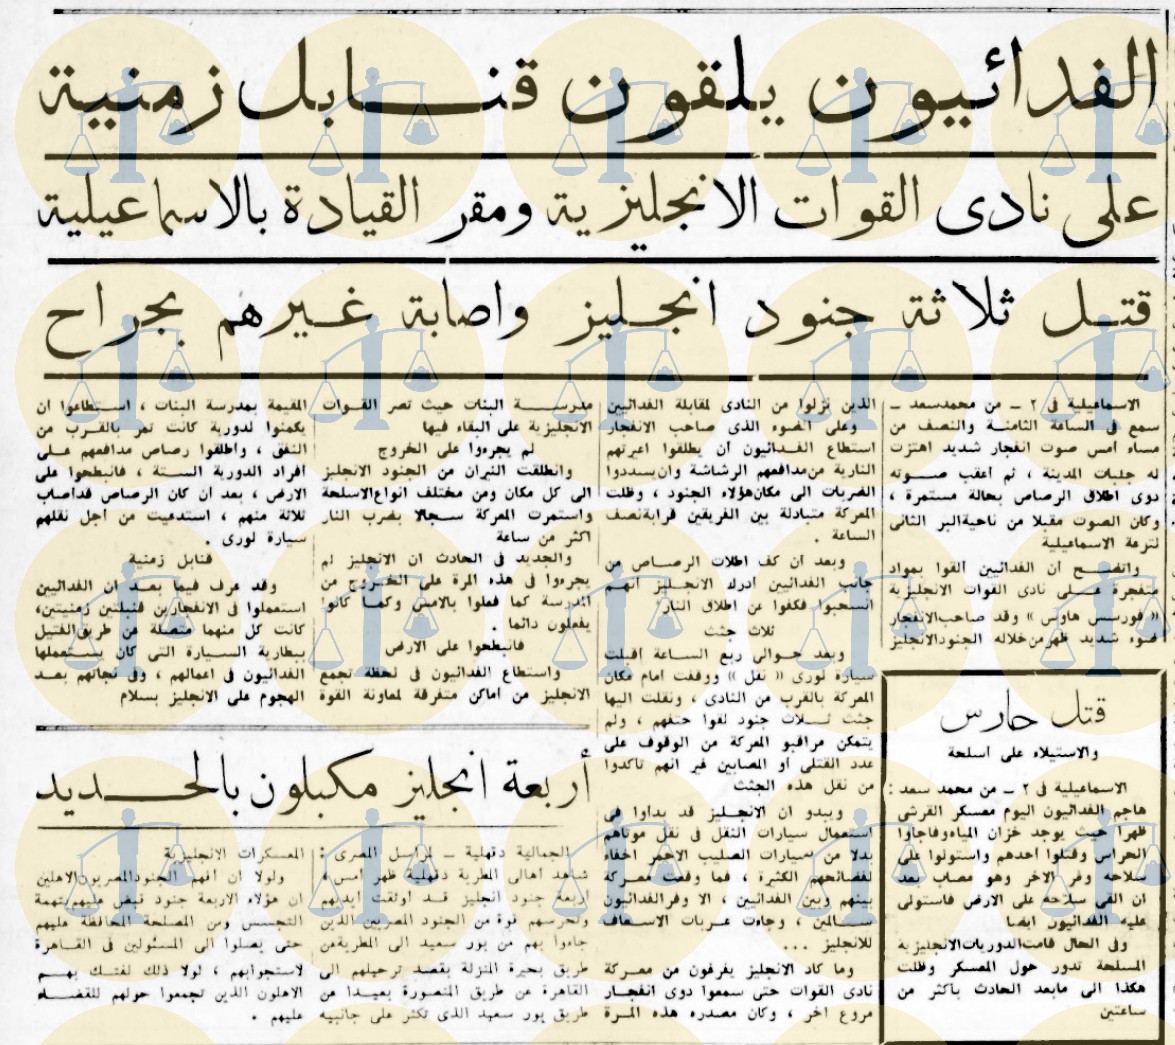 الفدائيون يلقون قنابل زمنية
على نادى القوات الانجليزية ومقر القيادة بالاسماعيلية
قتل ثلاثة جنود انجليز واصابة غيرهم بجراح
الاسماعيلية فى ٢ ــ من محمدسعد ــ
سمع فى الساعة الثامنة والنصف من
مساء امس صوت انفجار شديد اهتزت
له جنبات المدينة ، ثم اعقب صوته
دوى اطلاق الرصاص بحالة مستمرة ،
وكان الصوت مقبلا من ناحيةالبر الثانى
لترعة الاسماعيلية
واتضح ان الفدائيين القوا بمواد
متفجرة على نادى القوات الانجليزية
« فورسس هاوس » وقد صاحب‌الانفجار
ضوء شديد ظهرمن‌خلاله الجنودالانجليز
الذين نزلوا من النادى لمقابلة الفدائيين
وعلى الضوء الذى صاحب الانفجار
استطاع الفدائيون أن يطلقوا اعيرتهم
النارية من‌مدافعهم الرشاشة وان‌يسددوا
الضربات الى مكان‌هؤلاء الجنود ، وظلت
المعركة متبادلة بين الفريقين قرابةنصف
الساعة .
وبعد ان كف اطلات الرصاص من
جانب الفدائيين أدرك الانجليز انهم
انسحبوا فكفوا عن اطلاق النار
ثلاث جثث
وبعد حوالى ربع الساعة اقبلت
سيارة لورى « نقل » ووقفت أمام مكان
المعركة بالقرب من النادى ، ونقلت اليها
جثث ثلاث جنود لقوا حتفهم ، ولم
يتمكن مراقبو المعركة من الوقوف على
عدد القتلى أو المصابين غير انهم تأكدوا
من نقل هذه الجثث
ويبدو ان الانجليز قد بدأوا فى
استعمال سيارات النقل فى نقل موتاهم
بدلا من سيارات الصليب الاحمر اخفاء
لفضائحهم الكثيرة ، فما وقعت معركة
بينهم وبين الفدائيين ، الا وفرالفدائيون
سالمين ، وجاءت عربات الاسعاف
للانجليز ...
وما كاد الانجليز يفرغون من معركة
نادى القوات حتى سمعوا دوى انفجار
مروع اخر ، وكان مصدره هذه المرة
مدرسة البنات حيث تصر القوات
الانجليزية على البقاء فيها
لم يجرءوا على الخروج
وانطلقت النيران من الجنود الانجليز
الى كل مكان ومن مختلف انواع‌الاسلحة
واستمرت المعركة سجالا بضرب النار
اكثر من ساعة
والجديد فى الحادث ان الانجليز لم
يجرءوا فى هذه المرة على الخروج من
المدرسة كما فعلوا بالامس وكما كانوا
يفعلون دائما .
فانبطحوا على الارض
واستطاع الفدائيون فى لحظة تجمع
الانجليز من أماكن متفرقة لمعاونة القوة
المقيمة بمدرسة البنات ، استطاعوا ان
يكمنوا لدورية كانت تمر بالقرب من
النفق ، واطلقوا رصاص مدافعهم على
افراد الدورية الستة ، فانبطحوا على
الارض ، بعد ان كان الرصاص قداصاب
ثلاثة منهم ، استدعيت من أجل نقلهم
سيارة لورى .
قنابل زمنية
وقد عرف فيما بعد ان الفدائيين
استعملوا فى الانفجارين قنبلتين زمنيتين،
كانت كل منهما متصلة عن طريق‌الفتيل
ببطارية السيارة التى كان يستعملها
الفدائيون فى اعمالهم ، وفى نجاتهم بعد
الهجوم على الانجليز بسلام
قتل حارس
والاستيلاء على أسلحة
الاسماعيلية فى ٢ ــ من محمد سعد :
هاجم الفدائيون اليوم معسكر القرشى
ظهرا حيث يوجد خزان المياه‌وفاجأوا
الحراس وقتلوا احدهم واستولوا على
سلاحه وفر الاخر وهو مصاب بعد
ان القى سلاحه على الارض فاستولى
عليه الفدائيون ايضا
وفى الحال قامت‌الدوريات‌الانجليزية
المسلحة تدور حول المعسكر وظلت
هكذا الى مابعد الحادث بأكثر من
ساعتين
أربعة انجليز مكبلون بالحديد
الجمالية دقهلية ــ لمراسل المصرى :
شاهد اهالى المطرية دقهلية ظهر امس ،
أربعة جنود انجليز قد اوثقت أيديهم
وتحرسهم قوة من الجنود المصريين الذين
جاءوا بهم من بور سعيد الى المطريةعن
طريق بحيرة المنزلة بقصد ترحيلهم الى
القاهرة عن طريق المنصورة بعيدا عن
طريق بور سعيد الذى تكثر على جانبيه
المعسكرات الانجليزية
ولولا ان افهم الجنودالمصريون‌الاهلين
ان هؤلاء الاربعة جنود قبض عليهم‌بتهمة
التجسس ومن المصلحة المحافظة عليهم
حتى يصلوا الى المسئولين فى القاهرة
لاستجوابهم ، لولا ذلك لفتك بهم
الاهلون الذين تجمعوا حولهم للقضاء
عليهم .